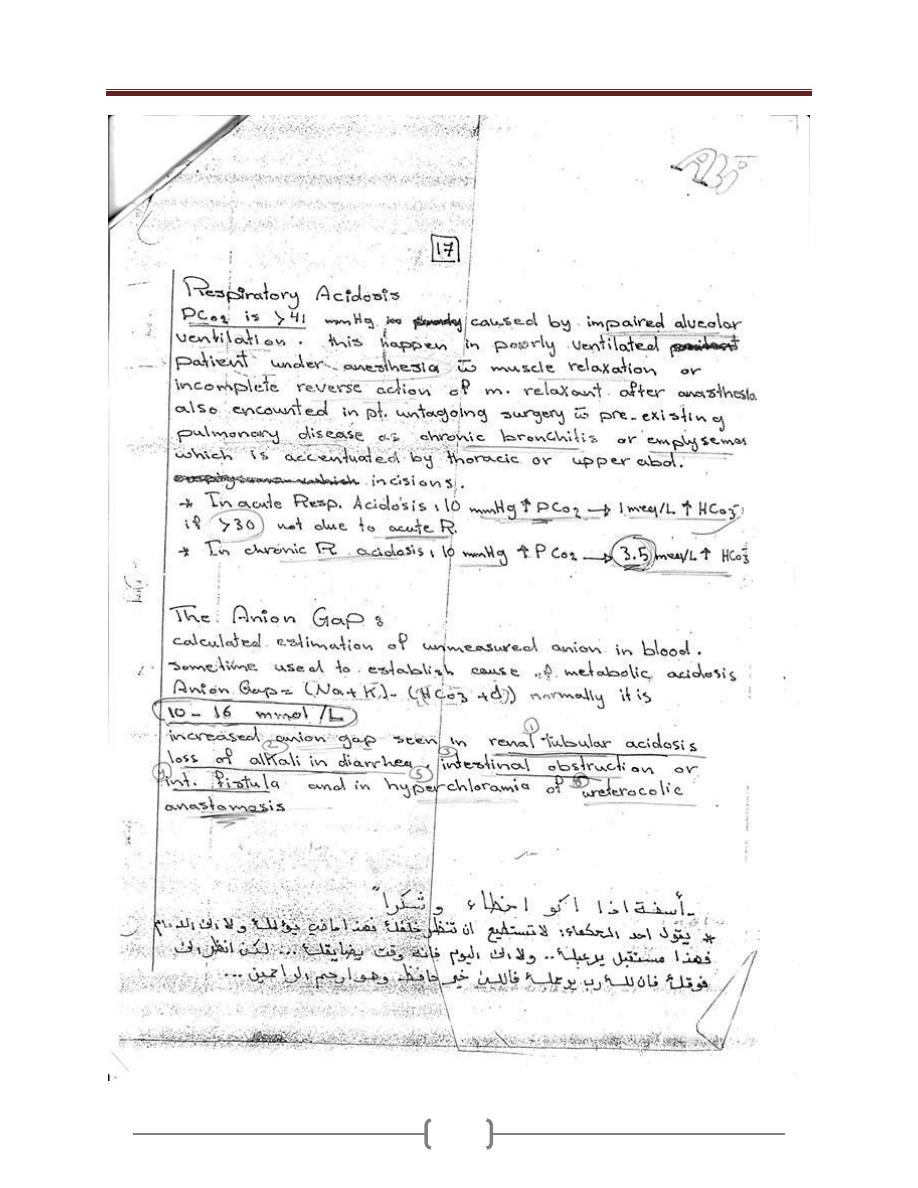 ABG
17
Respiratory Acidosis
PCo2 is >41 mmHg caused by impaired alveolar
ventilation. this happen in poorly ventilated
patient under anesthesia w̄ muscle relaxation or
incomplete reverse action of m. relaxant after anasthesia.
also encounted in pt. untagoing surgery w̄ pre-existing
pulmonary disease as chronic bronchitis or emplysemes
which is accentuated by thoracic or upper abd.
incisions.
* In acute Resp. Acidosis: 10 mmHg ↑ PCo2 → 1 meq/L ↑ HCo3⁻
if >30 not due to acute R.
* In chronic R. acidosis: 10 mmHg ↑ PCo2 → 3.5 meq/L ↑ HCo3⁻
The Anion Gap :
calculated estimation of unmeasured anion in blood.
sometime used to establish cause of metabolic acidosis
Anion Gap = (Na + K) - (HCo3 + cl) normally it is
10 - 16 mmol /L
increased anion gap seen in ① renal tubular acidosis
② loss of alkali in diarrhea, ③ intestinal obstruction or
④ int. fistula and in ⑤ hyperchloramia of ⑥ ureterocolic
anastomosis
- أسفة اذا اكو اخطاء وشكراً"
* يقول احد الحكماء: لا تستطيع ان تنظر خلفك فهذا ماضي يؤلمك ولا الى الامام
فهذا مستقبل يرعبك.. ولا الى اليوم فانه وقت يضايقك ... لكن انظر الى
فوقك فان لك رب يرعاك فالله خير حافظ وهو ارحم الراحمين ...